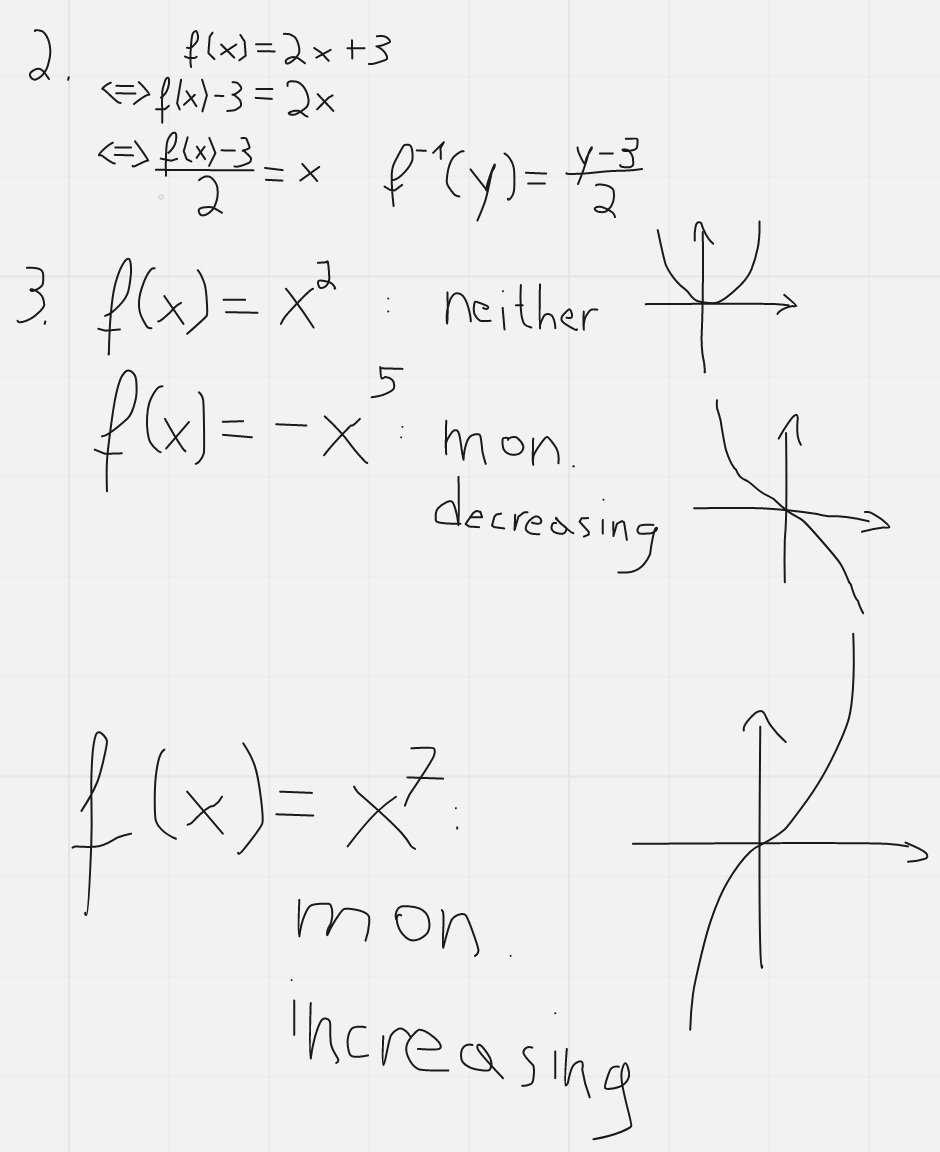 2. f(x) = 2x + 3
<=> f(x) - 3 = 2x
<=> (f(x) - 3)/2 = x f⁻¹(y) = (y - 3)/2
3. f(x) = x² : neither
f(x) = -x⁵ : mon.
decreasing
f(x) = x⁷ :
mon.
increasing